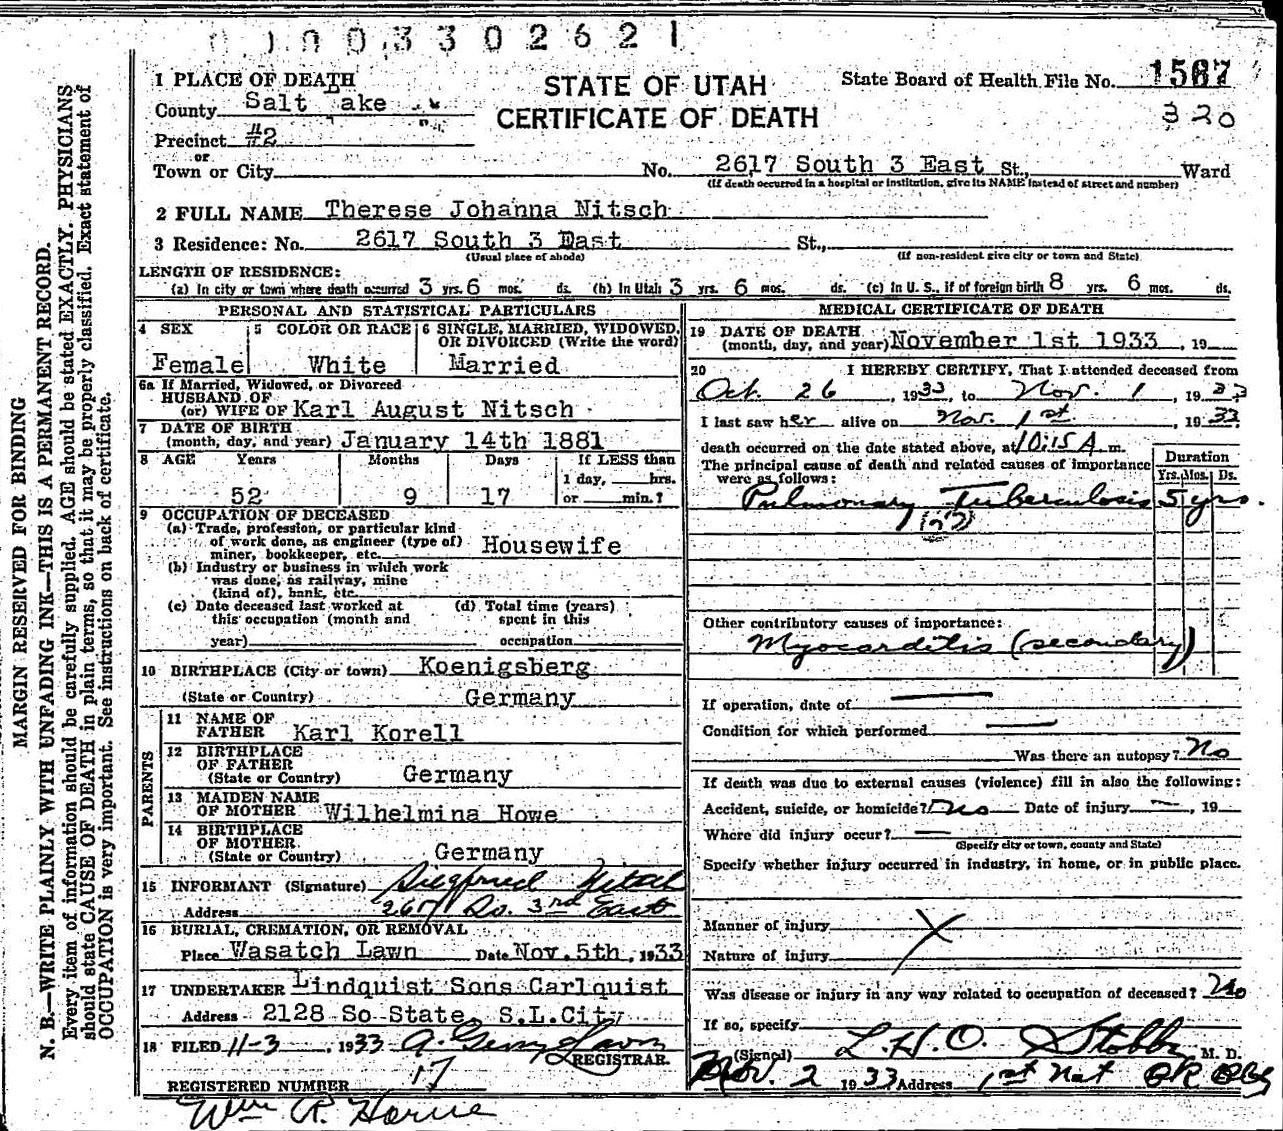 0 1 0 0 3 3 0 2 6 2 1
1 PLACE OF DEATH
County Salt Lake
Precinct #2
or
Town or City
STATE OF UTAH
CERTIFICATE OF DEATH
State Board of Health File No. 1567
320
No. 2617 South 3 East St., Ward
(If death occurred in a hospital or institution, give its NAME instead of street and number)
2 FULL NAME Therese Johanna Nitsch
3 Residence: No. 2617 South 3 East St.,
(Usual place of abode) (If non-resident give city or town and State)
LENGTH OF RESIDENCE:
(a) In city or town where death occurred 3 yrs. 6 mos. ds. (b) In Utah 3 yrs. 6 mos. ds. (c) In U. S., if of foreign birth 8 yrs. 6 mos. ds.
PERSONAL AND STATISTICAL PARTICULARS
4 SEX 5 COLOR OR RACE 6 SINGLE, MARRIED, WIDOWED, OR DIVORCED (Write the word)
Female White Married
6a If Married, Widowed, or Divorced
HUSBAND OF
(or) WIFE OF Karl August Nitsch
7 DATE OF BIRTH
(month, day, and year) January 14th 1881
8 AGE Years Months Days If LESS than
1 day, hrs.
52 9 17 or min.?
9 OCCUPATION OF DECEASED
(a) Trade, profession, or particular kind
of work done, as engineer (type of)
miner, bookkeeper, etc. Housewife
(b) Industry or business in which work
was done, as railway, mine
(kind of), bank, etc.
(c) Date deceased last worked at
this occupation (month and
year)
(d) Total time (years)
spent in this
occupation
10 BIRTHPLACE (City or town) Koenigsberg
(State or Country) Germany
PARENTS
11 NAME OF
FATHER Karl Korell
12 BIRTHPLACE
OF FATHER
(State or Country) Germany
13 MAIDEN NAME
OF MOTHER Wilhelmina Howe
14 BIRTHPLACE
OF MOTHER
(State or Country) Germany
15 INFORMANT (Signature) Siegfried Nitsch
Address 2617 So. 3rd East
16 BURIAL, CREMATION, OR REMOVAL
Place Wasatch Lawn Date Nov. 5th, 1933
17 UNDERTAKER Lindquist Sons Carlquist
Address 2128 So State, S.L.City
18 FILED 11-3, 1933
REGISTRAR.
REGISTERED NUMBER 17
Wm R. Horne
MEDICAL CERTIFICATE OF DEATH
19 DATE OF DEATH
(month, day, and year) November 1st 1933, 19
20 I HEREBY CERTIFY, That I attended deceased from
Oct. 26, 1933, to Nov. 1, 1933
I last saw her alive on Nov. 1st, 1933.
death occurred on the date stated above, at 10:15 A. m.
The principal cause of death and related causes of importance
were as follows:
Duration
Yrs. Mos. Ds.
Pulmonary Tuberculosis 5 yrs.
(23)
Other contributory causes of importance:
Myocarditis (secondary)
If operation, date of
Condition for which performed
Was there an autopsy? No
If death was due to external causes (violence) fill in also the following:
Accident, suicide, or homicide? No Date of injury , 19
Where did injury occur?
(Specify city or town, county and State)
Specify whether injury occurred in industry, in home, or in public place.
Manner of injury
Nature of injury
X
Was disease or injury in any way related to occupation of deceased? No
If so, specify
(Signed) L. H. O. Stobbe, M. D.
Nov. 2 1933 Address 1st Nat
MARGIN RESERVED FOR BINDING
N. B.—WRITE PLAINLY WITH UNFADING INK—THIS IS A PERMANENT RECORD.
Every item of information should be carefully supplied. AGE should be stated EXACTLY. PHYSICIANS
should state CAUSE OF DEATH in plain terms, so that it may be properly classified. Exact statement of
OCCUPATION is very important. See instructions on back of certificate.